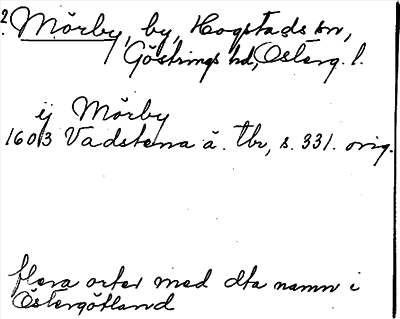 2. Mörby, by, Hogstads sn,
Göstrings hd, Österg. l.
ej Mörby
1603 Vadstena ä. tbr, s. 331. orig.
flera orter med dta namn i
Östergötland